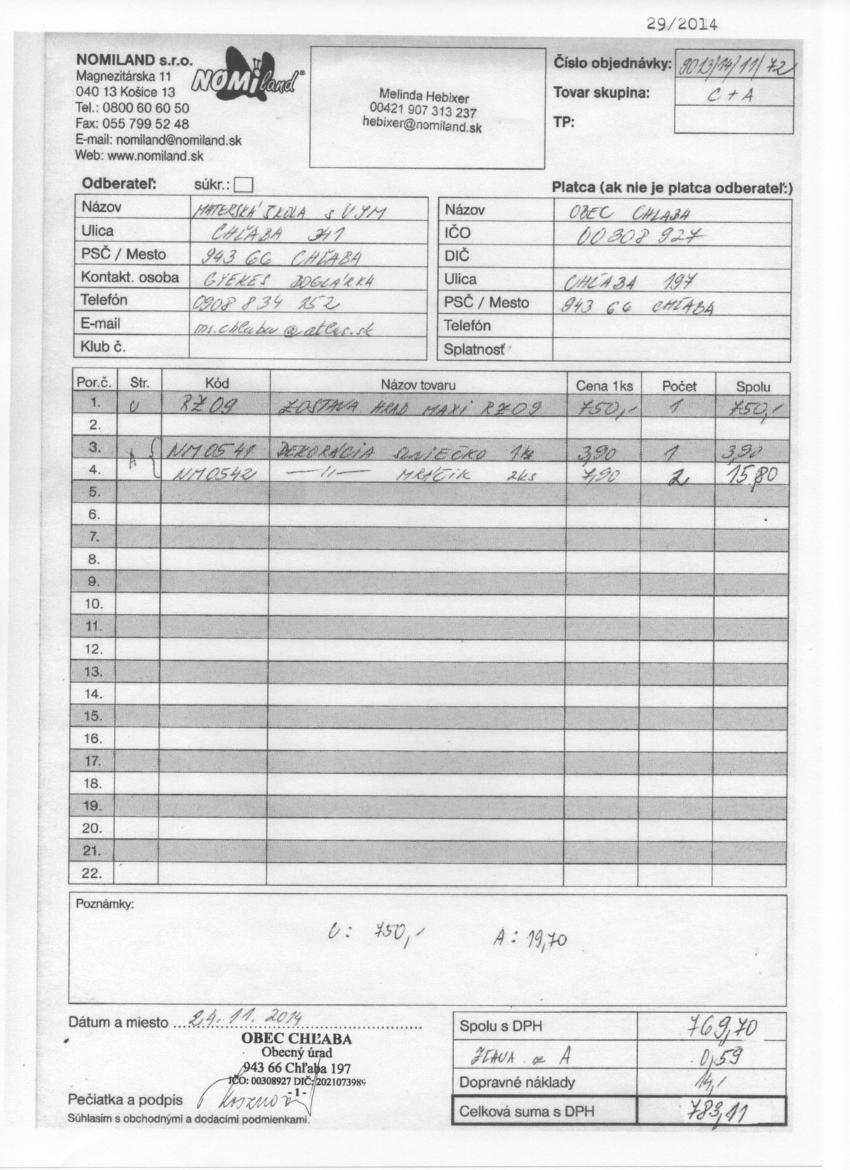 29/2014
NOMILAND s.r.o.
Magnezitárska 11
040 13 Košice 13
Tel.: 0800 60 60 50
Fax: 055 799 52 48
E-mail: nomiland@nomiland.sk
Web: www.nomiland.sk
NOMiland®
Melinda Hebixer
00421 907 313 237
hebixer@nomiland.sk
Číslo objednávky: 9013/14/11/72
Tovar skupina: C + A
TP:
Odberateľ: súkr.:
Názov MATERSKÁ ŠKOLA s VJM
Ulica CHĽABA
PSČ / Mesto 943 66 CHĽABA
Kontakt. osoba GYEKES BOGLÁRKA
Telefón 0908 834 252
E-mail ms.chlaba@atlas.sk
Klub č.
Platca (ak nie je platca odberateľ:)
Názov OBEC CHĽABA
IČO 00308 927
DIČ
Ulica CHĽABA 197
PSČ / Mesto 943 66 CHĽABA
Telefón
Splatnosť
Por.č. Str. Kód Názov tovaru Cena 1ks Počet Spolu
1. U RZ09 ZOSTAVA HRAD MAXI RZ09 750,- 1 750,-
2.
3. A NM0541 DEKORÁCIA SLNIEČKO 1ks 3,90 1 3,90
4. NM0542 —"— MRÁČIK 2ks 7,90 2 15,80
5.
6.
7.
8.
9.
10.
11.
12.
13.
14.
15.
16.
17.
18.
19.
20.
21.
22.
Poznámky:
U: 750,- A: 19,70
Dátum a miesto 24. 11. 2014
OBEC CHĽABA
Obecný úrad
943 66 Chľaba 197
IČO: 00308927 DIČ: 2021073989
-1-
Pečiatka a podpis
Súhlasím s obchodnými a dodacími podmienkami.
Spolu s DPH 769,70
ZĽAVA z A 0,59
Dopravné náklady 14,-
Celková suma s DPH 783,11